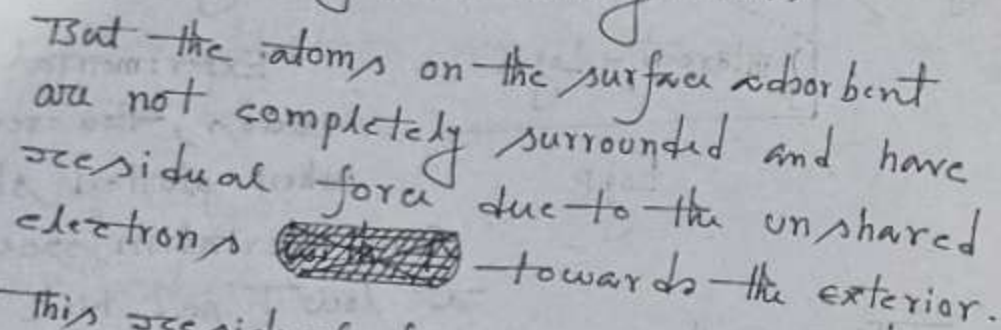 But the atoms on the surface adsorbent
are not completely surrounded and have
residual force due to the unshared
electrons towards the exterior.
This